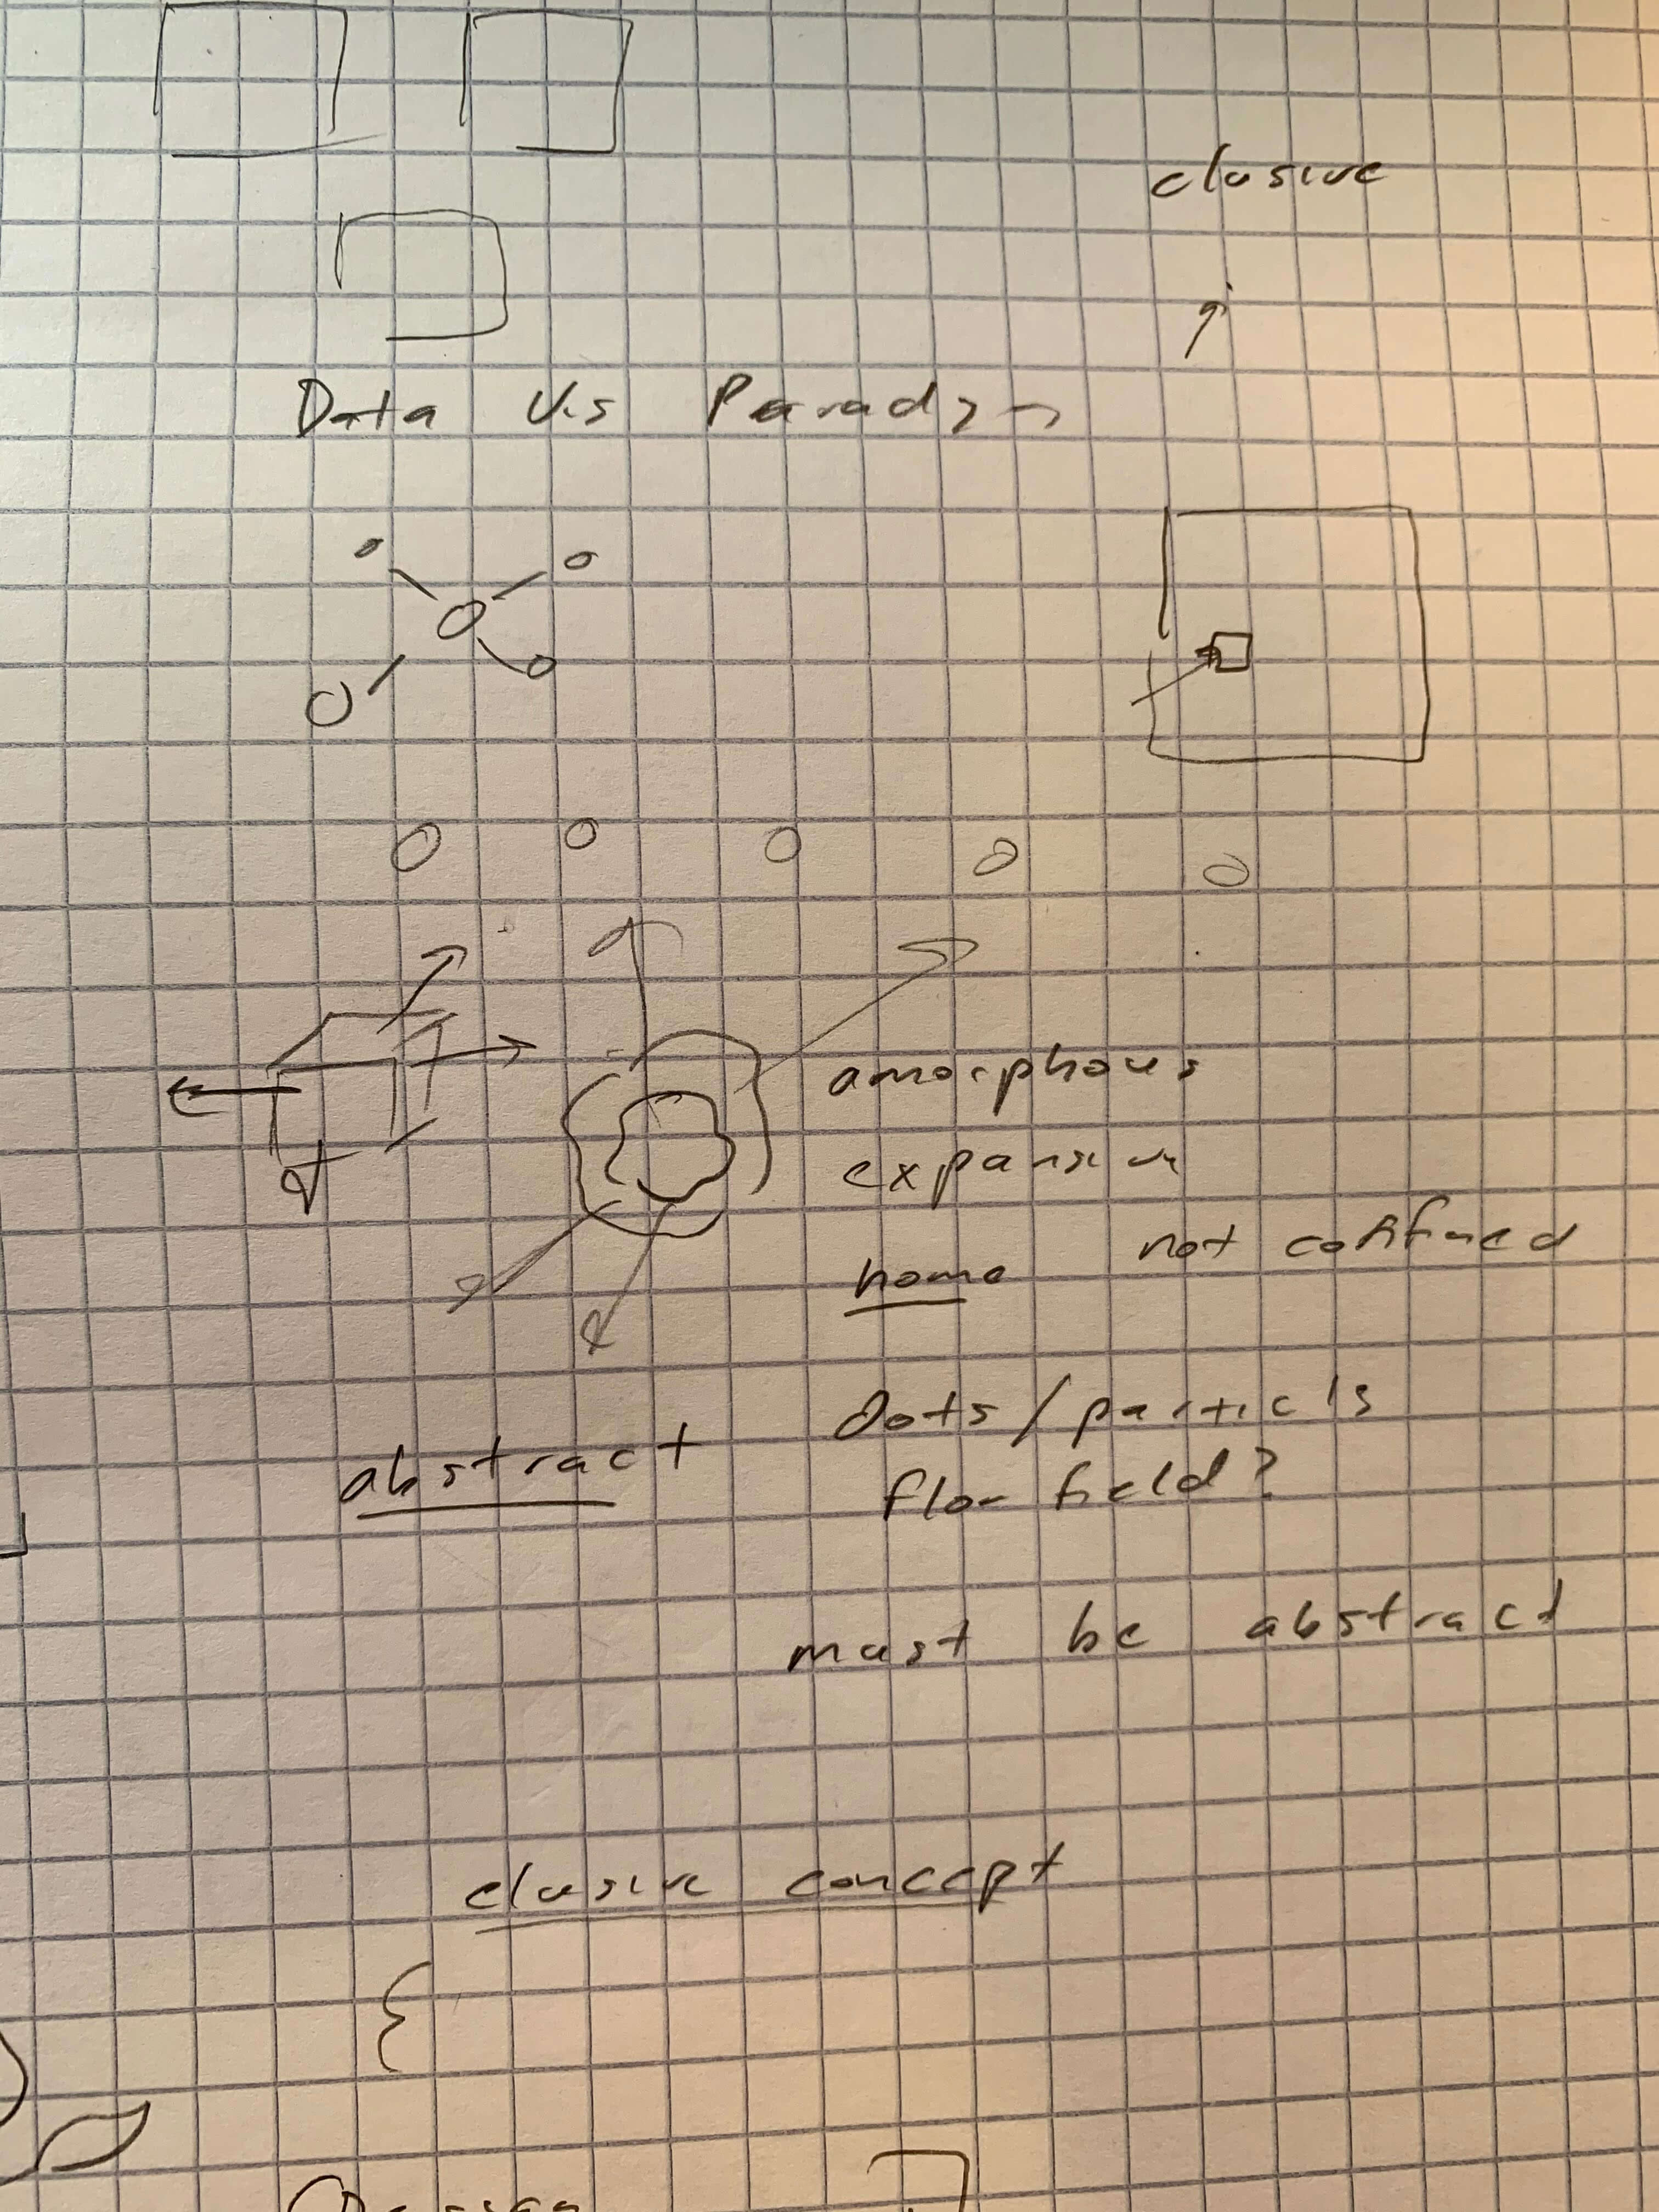 elusive
Data Vis Paradigm
amorphous
expansive
home not confined
dots/particls
flow field?
abstract
must be abstract
elusive concept